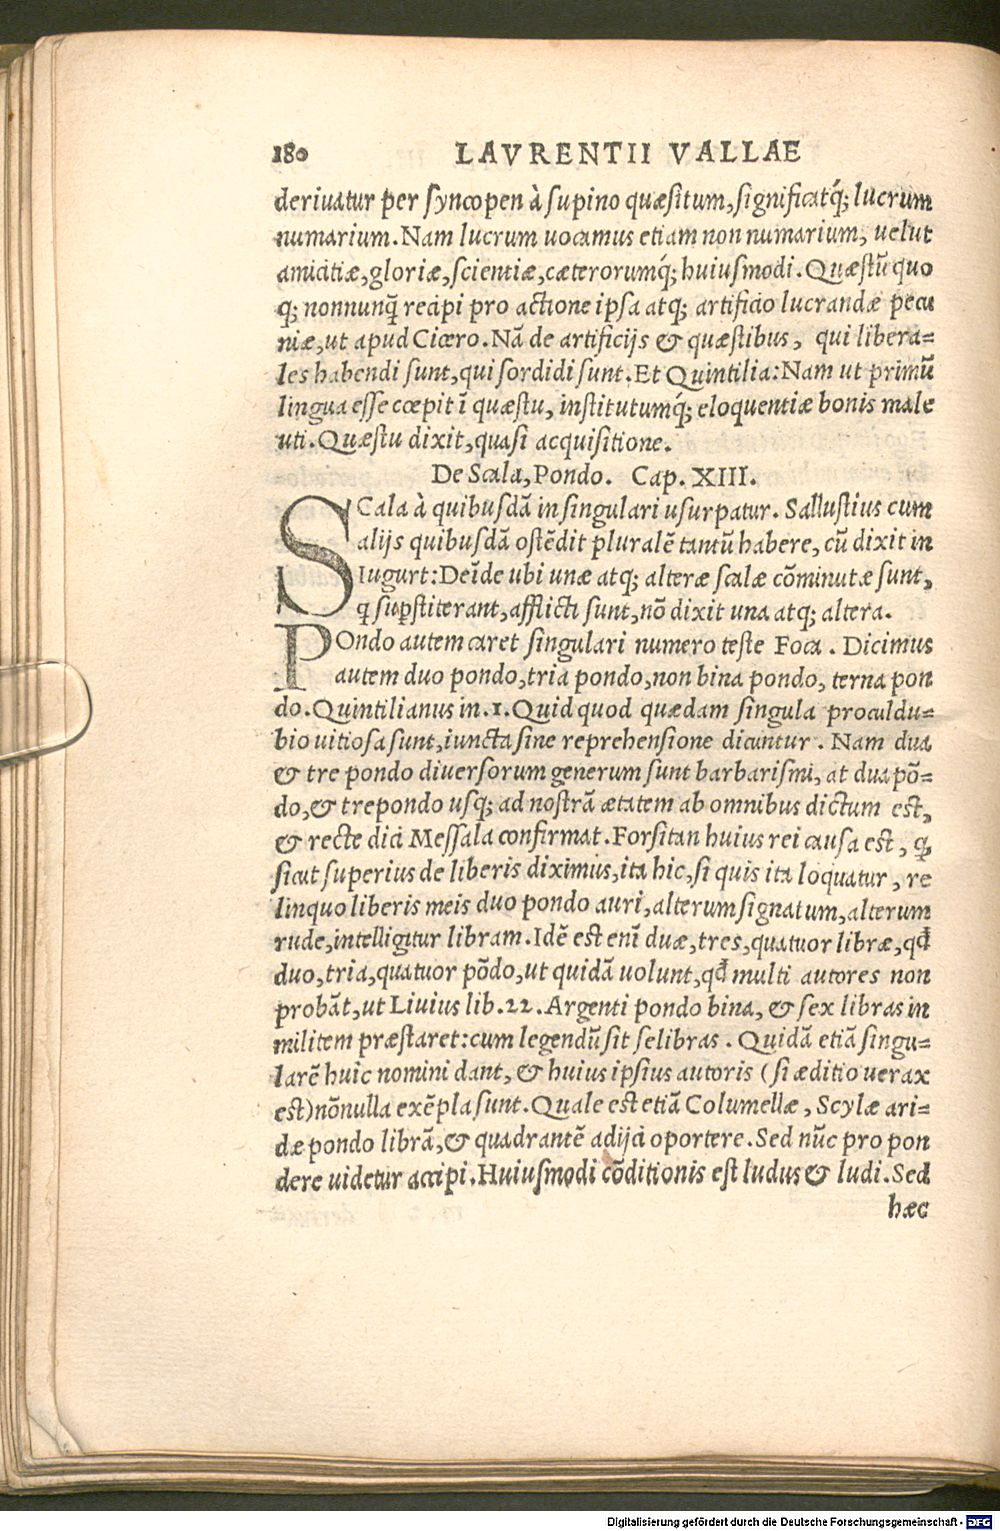 180 LAVRENTII VALLAE
deriuatur per syncopen à supino quæsitum, significatq́; lucrum
numarium. Nam lucrum uocamus etiam non numarium, uelut
amicitiæ, gloriæ, scientiæ, cæterorumq́; huiusmodi. Quæstũ quo
q; nonnunq̃ recipi pro actione ipsa atq; artificio lucrandæ pecu
niæ, ut apud Cicero. Nã de artificijs & quæstibus, qui libera=
les habendi sunt, qui sordidi sunt. Et Quintilia: Nam ut primũ
lingua esse cœpit ĩ quæstu, institutumq́; eloquentiæ bonis male
uti. Quæstu dixit, quasi acquisitione.
De Scala, Pondo. Cap. XIII.
SCala à quibusdã in singulari usurpatur. Sallustius cum
alijs quibusdã ostẽdit pluralẽ tantũ habere, cũ dixit in
Iugurt: Deĩde ubi unæ atq; alteræ scalæ cõminutæ sunt,
q sup̱stiterant, afflicti sunt, nõ dixit una atq; altera.
POndo autem caret singulari numero teste Foca. Dicimus
autem duo pondo, tria pondo, non bina pondo, terna pon
do. Quintilianus in .1. Quid quod quædam singula proculdu=
bio uitiosa sunt, iuncta sine reprehensione dicuntur. Nam dua
& tre pondo diuersorum generum sunt barbarismi, at dua põ=
do, & trepondo usq; ad nostrã ætatem ab omnibus dictum est,
& recte dici Messala confirmat. Forsitan huius rei causa est, ꝙ
sicut superius de liberis diximus, ita hic, si quis ita loquatur, re
linquo liberis meis duo pondo auri, alterum signatum, alterum
rude, intelligitur libram. Idẽ est enĩ duæ, tres, quatuor libræ, qđ
duo, tria, quatuor põdo, ut quidã uolunt, qđ multi autores non
probãt, ut Liuius lib. 22. Argenti pondo bina, & sex libras in
militem præstaret: cum legendũ sit selibras. Quidã etiã singu=
larẽ huic nomini dant, & huius ipsius autoris (si æditio uerax
est) nõnulla exẽpla sunt. Quale est etiã Columellæ, Scylæ ari=
dæ pondo librã, & quadrantẽ adijci oportere. Sed nũc pro pon
dere uidetur accipi. Huiusmodi cõditionis est ludus & ludi. Sed
hæc
Digitalisierung gefördert durch die Deutsche Forschungsgemeinschaft - DFG